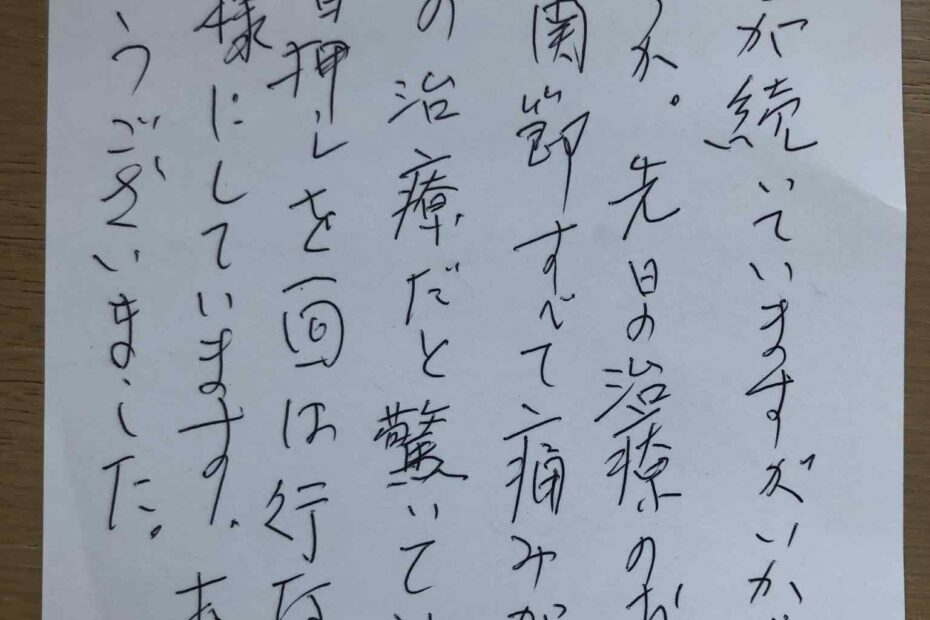 が続いていますがいか
か。先日の治療のお
関節すべて痛みが
の治療だと驚いて
押しを一回は行な
様にしています。あ
うございました。